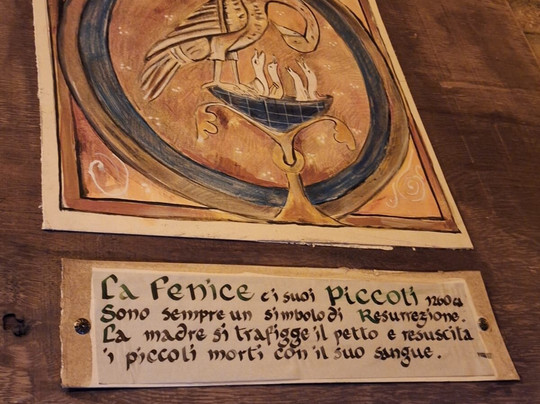 La Fenice e i suoi Piccoli 1260 ca
Sono sempre un simbolo di Resurrezione.
La madre si trafigge il petto e resuscita
i piccoli morti con il suo sangue.